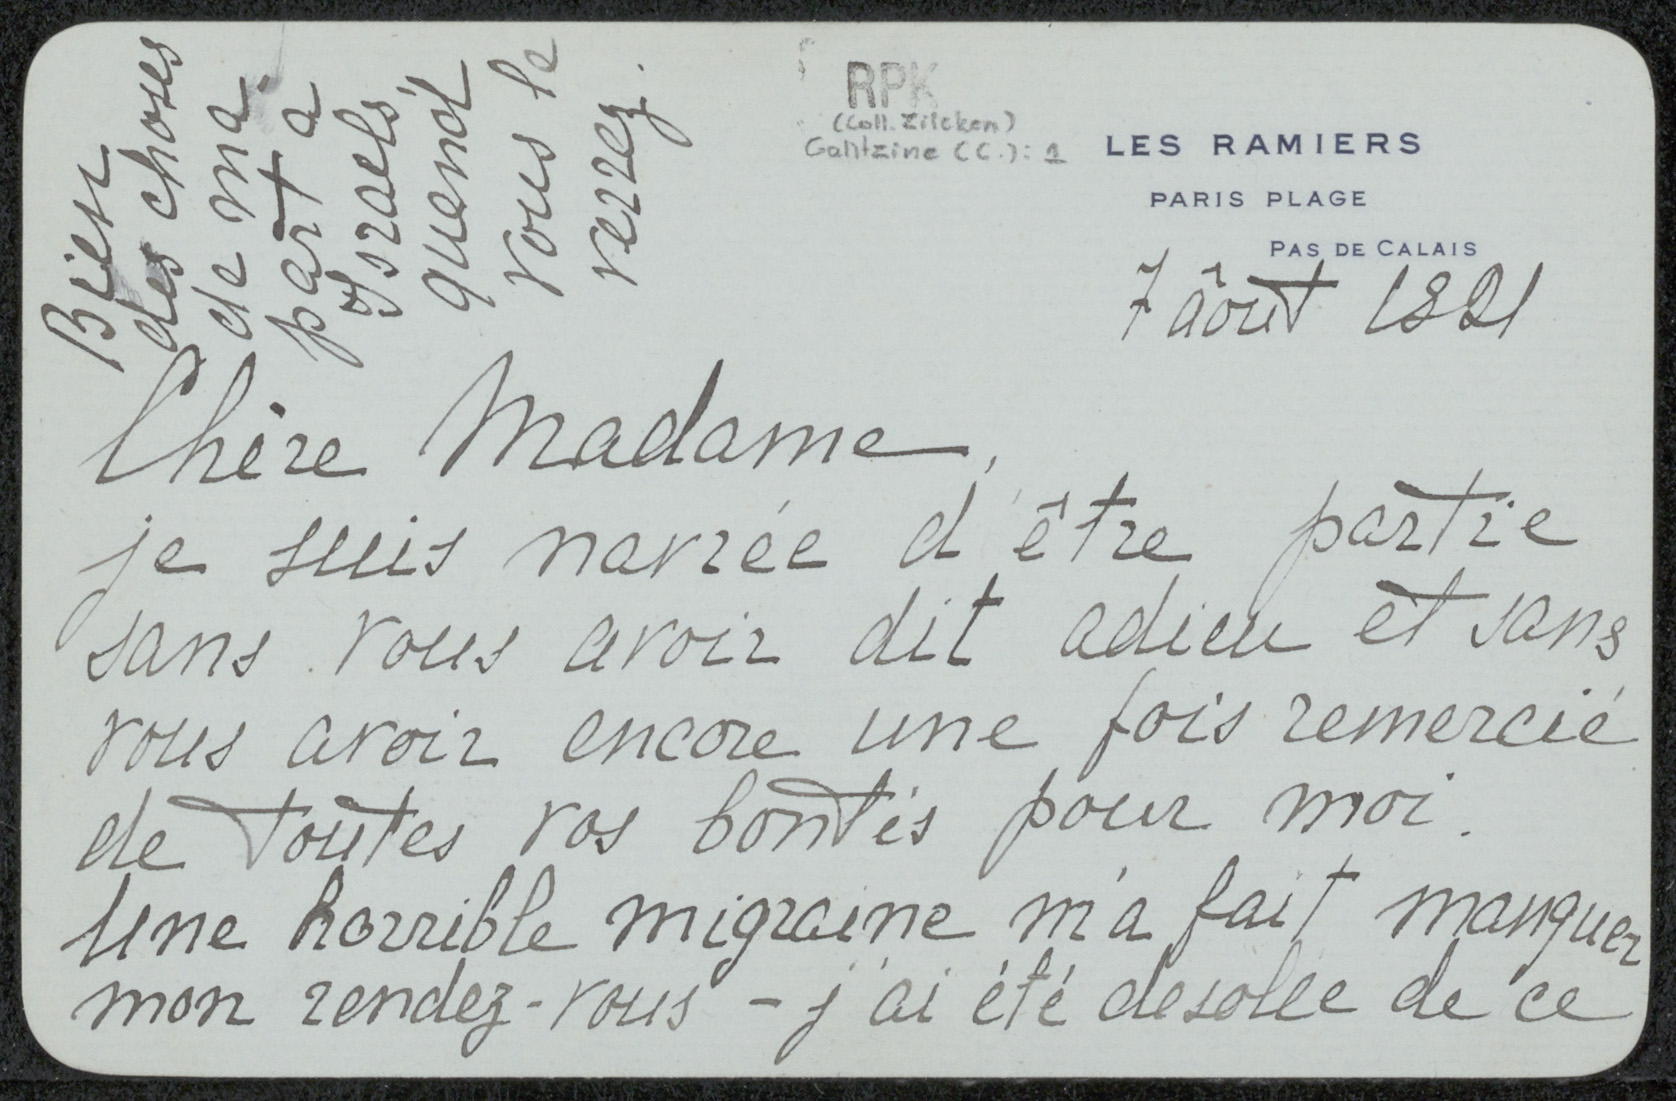 Bien
des choses
de ma
part à
Israels,
quand
vous le
verrez.
RPK
(Coll. Zilcken)
Gantzine (C.): 1
LES RAMIERS
PARIS PLAGE
PAS DE CALAIS
7 âout 1921
Chère Madame,
je suis navrée d'être partie
sans vous avoir dit adieu et sans
vous avoir encore une fois remercié
de toutes vos bontés pour moi.
Une horrible migraine m'a fait manquer
mon rendez-vous - j'ai été desolée de ce